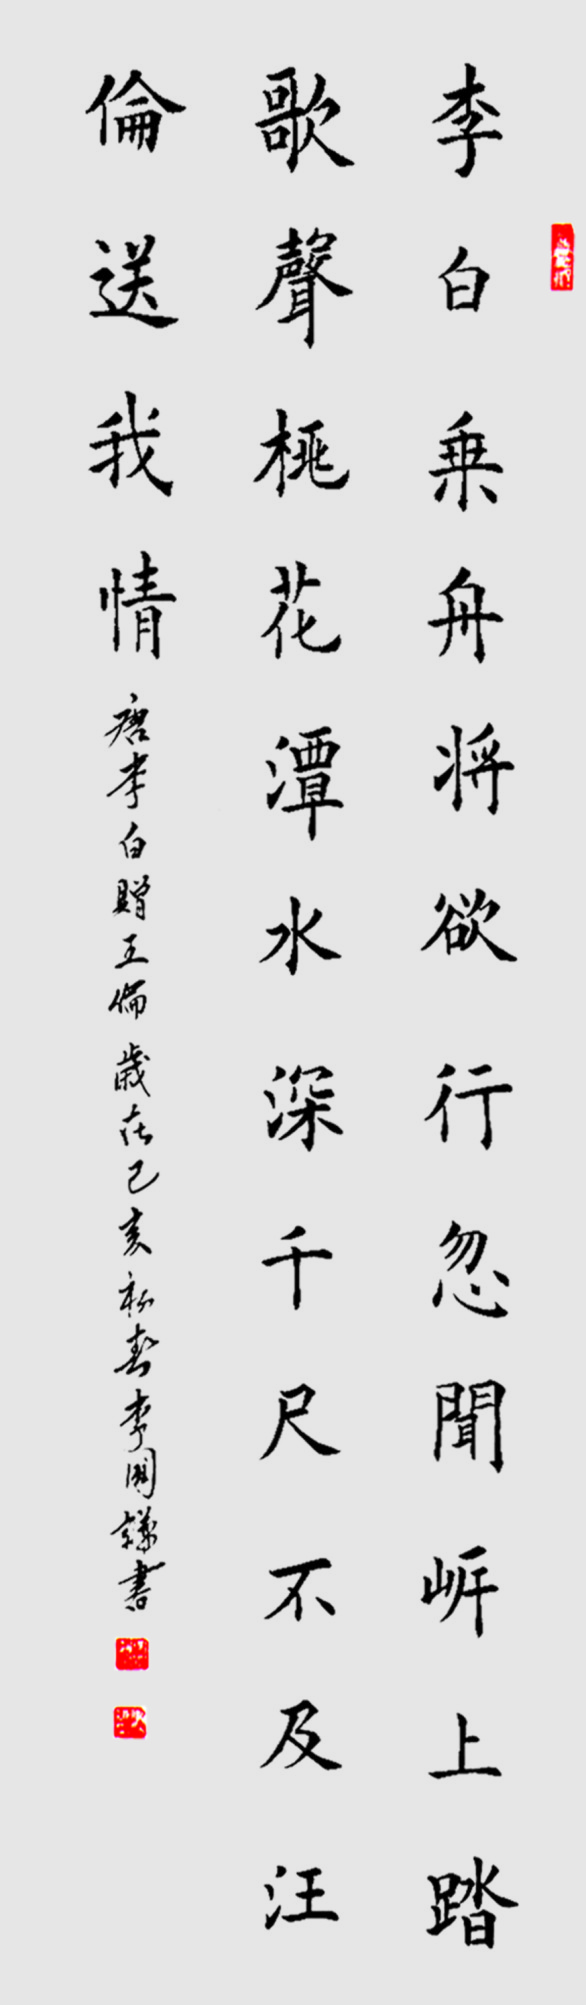 李白乗舟将欲行忽聞岸上踏
歌聲桃花潭水深千尺不及汪
倫送我情 唐李白贈王倫 歲在己亥初春李謙書